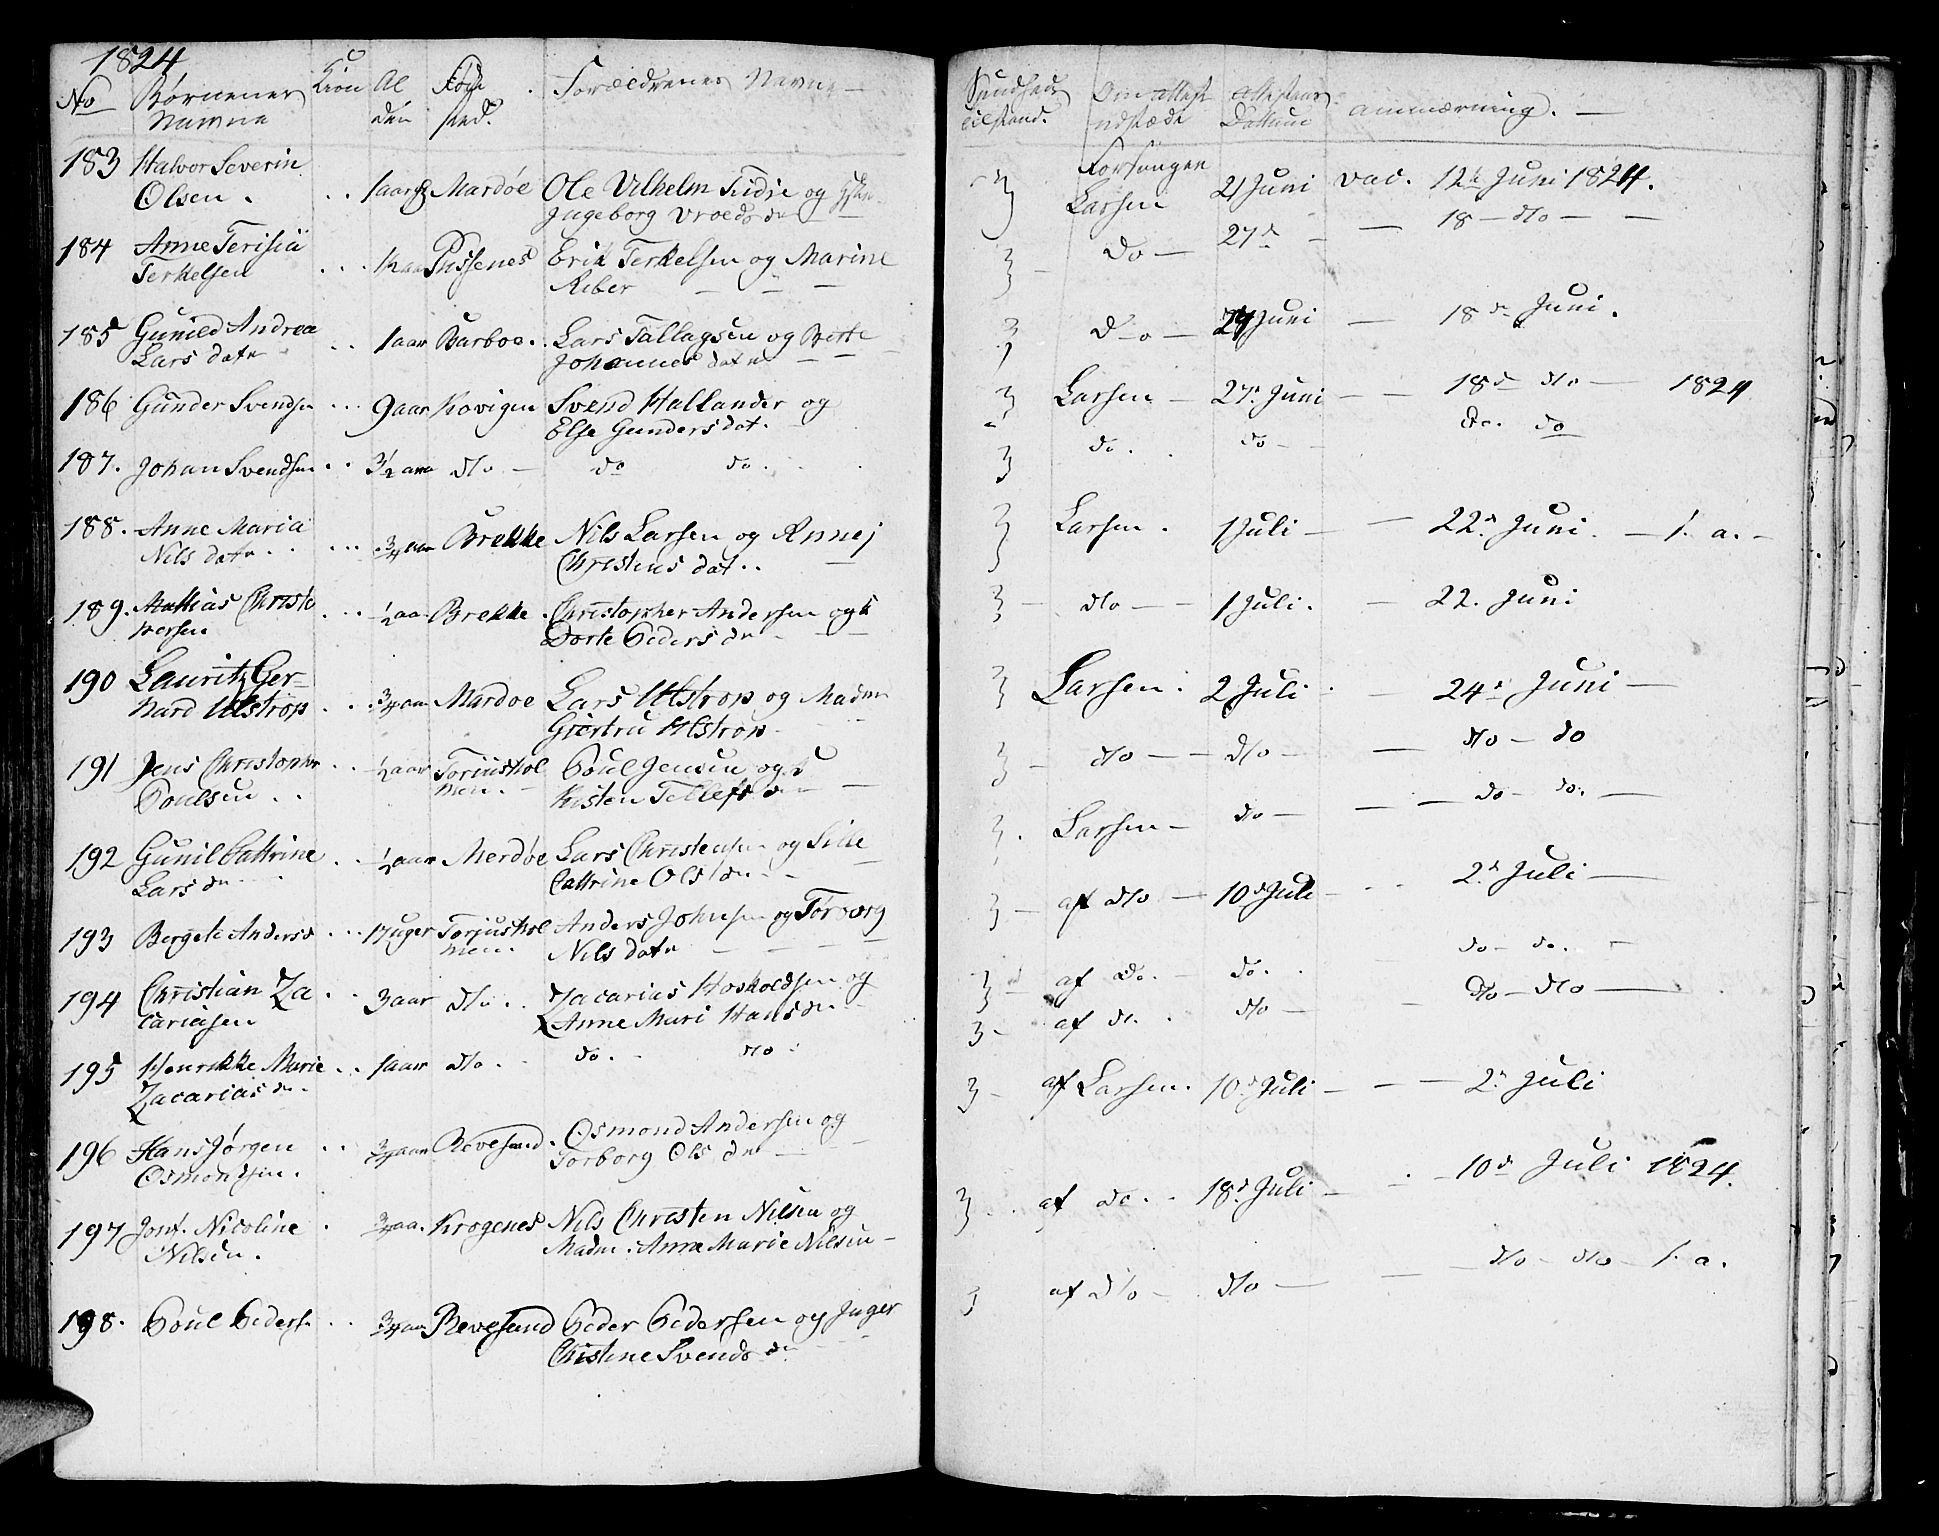 1824
No Børnenes Navne Kiön Al den Føde sted. Forældrenes Navne —
183 Halvor Severin Olsen . . . 1 aar Mardöe Ole Vilhelm og
Ingeborg
184 Anne Terisia Terkelsen . . . Pussenes Erik Terkelsen og Marine
Riber — — —
185 Gunild Andrea Lars datr . . 1 aar Barboe . Lars Tallagsen og Berte
Johannes datr — —
186 Gunder Svendsen . . . 9 aar Kovigen Svend Hallander og
Else Gunders dat.
187. Johan Svendsen . . 3 1/2 aar d/o — do do .
188. Anne Maria Nils datr . . . . . 3/4 aar Brekke Nils Larsen og Anne
Christens dat . . —
189. Mathias Christo
phersen . . . 1/2 aar Brekke . Christopher Andersen og
Dorte Peders dr — —
190 Lauritz Ger-
hard Ulstrop . . . 3/4 aar Mardoe Lars Ulstrop og Madm
Giertru Ulstrop
191 Jens Christopher Poulsen . . 1/2 aar Torjushol
men — Poul Jensen og
Kisten Tellefs dr —
192 Gunil Cattrine Lars dr . . 1/2 aar Merdöe Lars Christensen og Sille
Cattrine Ols dr
193 Bergete Anders d . . . 17 uger Torjushol
men . Anders Johnsen og Torborg
Nils datr — — — —
194 Christian Za
cariasen . . 3 aar d/o . . Zacarias Hoskoldsen og
Anne Mari Hans dr
195 Henrikke Marie Zacarias dr . . . 1 aar d/o . do . d/o .
196 Hans Jörgen Osmondsen . . . 3/4 aar Revesand . Osmond Andersen og
Torborg Ols dr —
197 Nicoline Nilsen . . 3/4 aa. Krogenes Nils Christen Nilsen og
Madm . Anne Marie Nilsen —
198. Poul Peders . . . 3/4 aar Revesand Peder Pedersen og Inger
Christine Svends dr
Sundheds tilstand. Om attest udstædt attestens Dattum anmærkning . —
Forsangen
Larsen 21 Juni vac. 12te Juni 1824.
Do — 27d — — 18 — d/o — —
Do — 24 Juni — 18d Juni .
Larsen — 27d Juni — — 18d d/o — 1824
do . . do — do . do
Larsen . 1 Juli — — 22d Juni . — 1. a. —
d/o — — 1 Juli . — 22. Juni
Larsen . 2 Juli . 24d Juni —
d/o — — d/o — — d/o — do
Larsen — do — — — do — do. —
af d/o — 10d Juli — . . 2d Juli —
af do. — do. . do — do. —
af do . d/o — — d/o — d/o —
af Larsen . 10d Juli — — — 2d Juli
af do . . 18d Juli — . — 10d Juli 1824.
af d/o — d/o — — — d/o — d/o — 1. a.